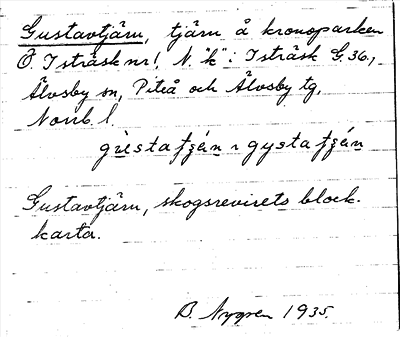 Gustavtjärn, tjärn å kronoparken
Ö. Isträsk nr 1, N. "k" i Isträsk G. 36,
Älvsby sn, Piteå och Älvsby tg,
Norrb. l.
Gustavtjärn, skogsrevirets block-
karta.
B. Nygren 1935.